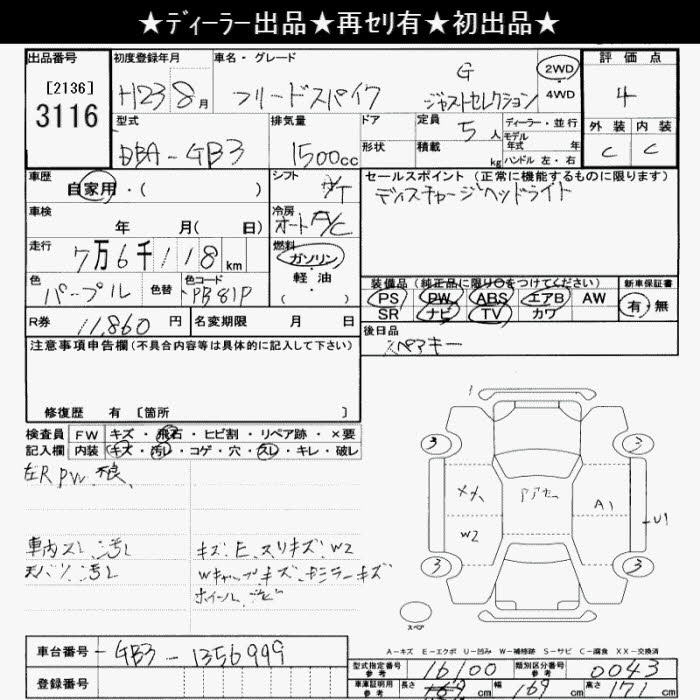 ★ディーラー出品★再セリ有★初出品★
出品番号
[2136]
3116
初度登録年月
H23 8月
車名・グレード
フリードスパイク
G
ジャストセレクション
2WD
4WD
評価点
4
外装 内装
C C
型式
DBA-GB3
排気量
1500cc
ドア
形状
定員
5人
積載
kg
ディーラー・並行
モデル
年式 年
ハンドル 左・右
車歴
自家用・( )
シフト
冷房
オートA/C
燃料
ガソリン
軽油
( )
車検
年 月( 日)
走行
7万6千118km
色
パープル
色替
色コード
PB81P
R券
11,860円
名変期限 月 日
セールスポイント (正常に機能するものに限ります)
ディスチャージヘッドライト
装備品 (純正品に限り○をつけてください)
PS PW ABS エアB AW
SR ナビ TV カワ
新車保証書
有・無
後日品
スペアキー
注意事項申告欄(不具合内容等は具体的に記入して下さい)
修復歴 有 [箇所 ]
検査員
記入欄
FW キズ・飛石・ヒビ割・リペア跡・×要
内装 キズ・汚レ・コゲ・穴・スレ・キレ・破レ
左R PW
車内スレ、汚レ
天バリ汚レ
キズ、E、スリキズ、W2
1
3 3
W2
A1
U1
3 3
スペア
A-キズ E-エクボ U-凹み W-補修跡 S-サビ C-腐食 XX-交換済
車台番号
GB3-1356999
登録番号
型式指定番号
参考
16100
類別区分番号
参考
0043
車庫証明用
参考
長さ cm
幅 169 cm
高さ 171 cm